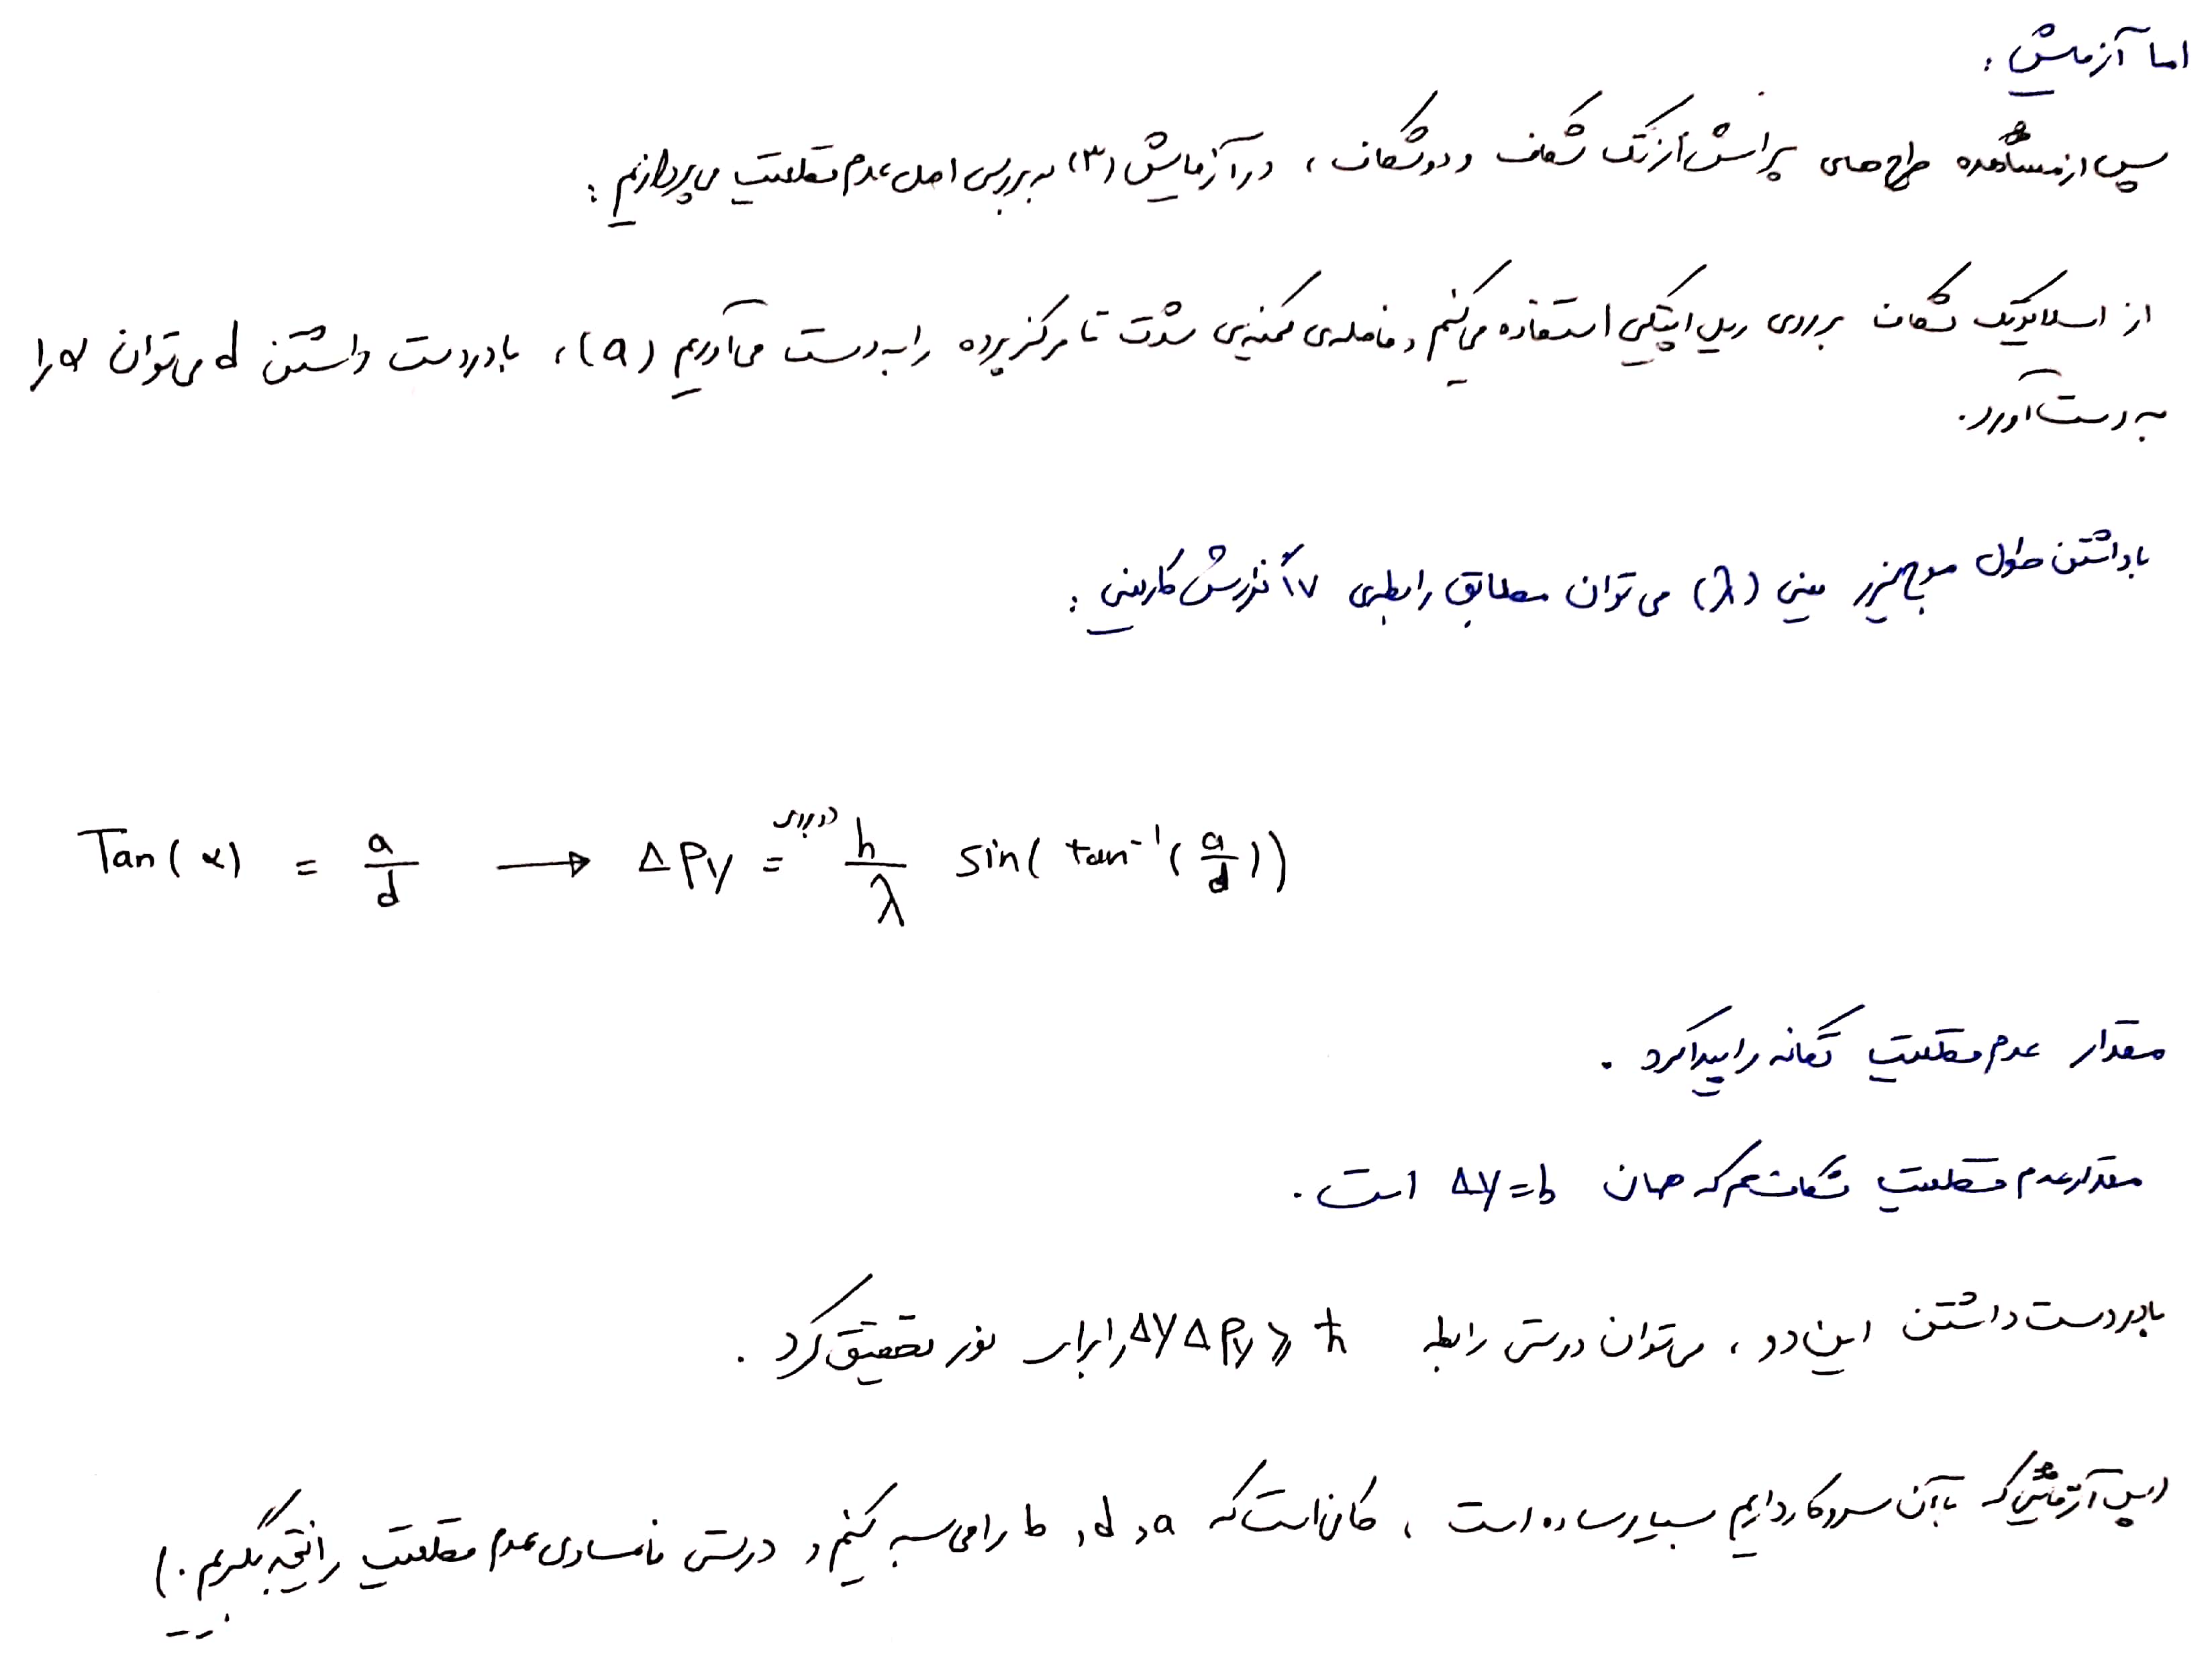 اما آزمایش :
پس از مشاهده طرح‌های پراش از تک شکاف و دو شکاف ، در آزمایش (۳) به بررسی اصل عدم قطعیت می‌پردازیم :
از اسلاید تک شکاف بر روی ریل اپتیکی استفاده می‌کنیم و فاصله‌ی کمینه‌ی شدت تا مرکز پرده را به دست می‌آوریم (a) ، با در دست داشتن d می‌توان α را
به دست آورد .
با داشتن طول موج لیزر یعنی (λ) می‌توان مطابق رابطه‌ی ۱۷ گزارش کار یعنی :
Tan(α) = a/d → ΔPy = h/λ sin(tan⁻¹(a/d))
مقدار عدم قطعیت تکانه را پیدا کرد .
مقدار عدم قطعیت هم که همان Δy = b است .
با در دست داشتن این دو ، می‌توان درستی رابطه Δy ΔPy ⩾ ħ را برای نور تحقیق کرد .
(پس آزمایشی که با آن سر و کار داریم بسیار ساده است ، کافی است که a و d و b را محاسبه کنیم و درستی نامساوی عدم قطعیت را نتیجه بگیریم . )